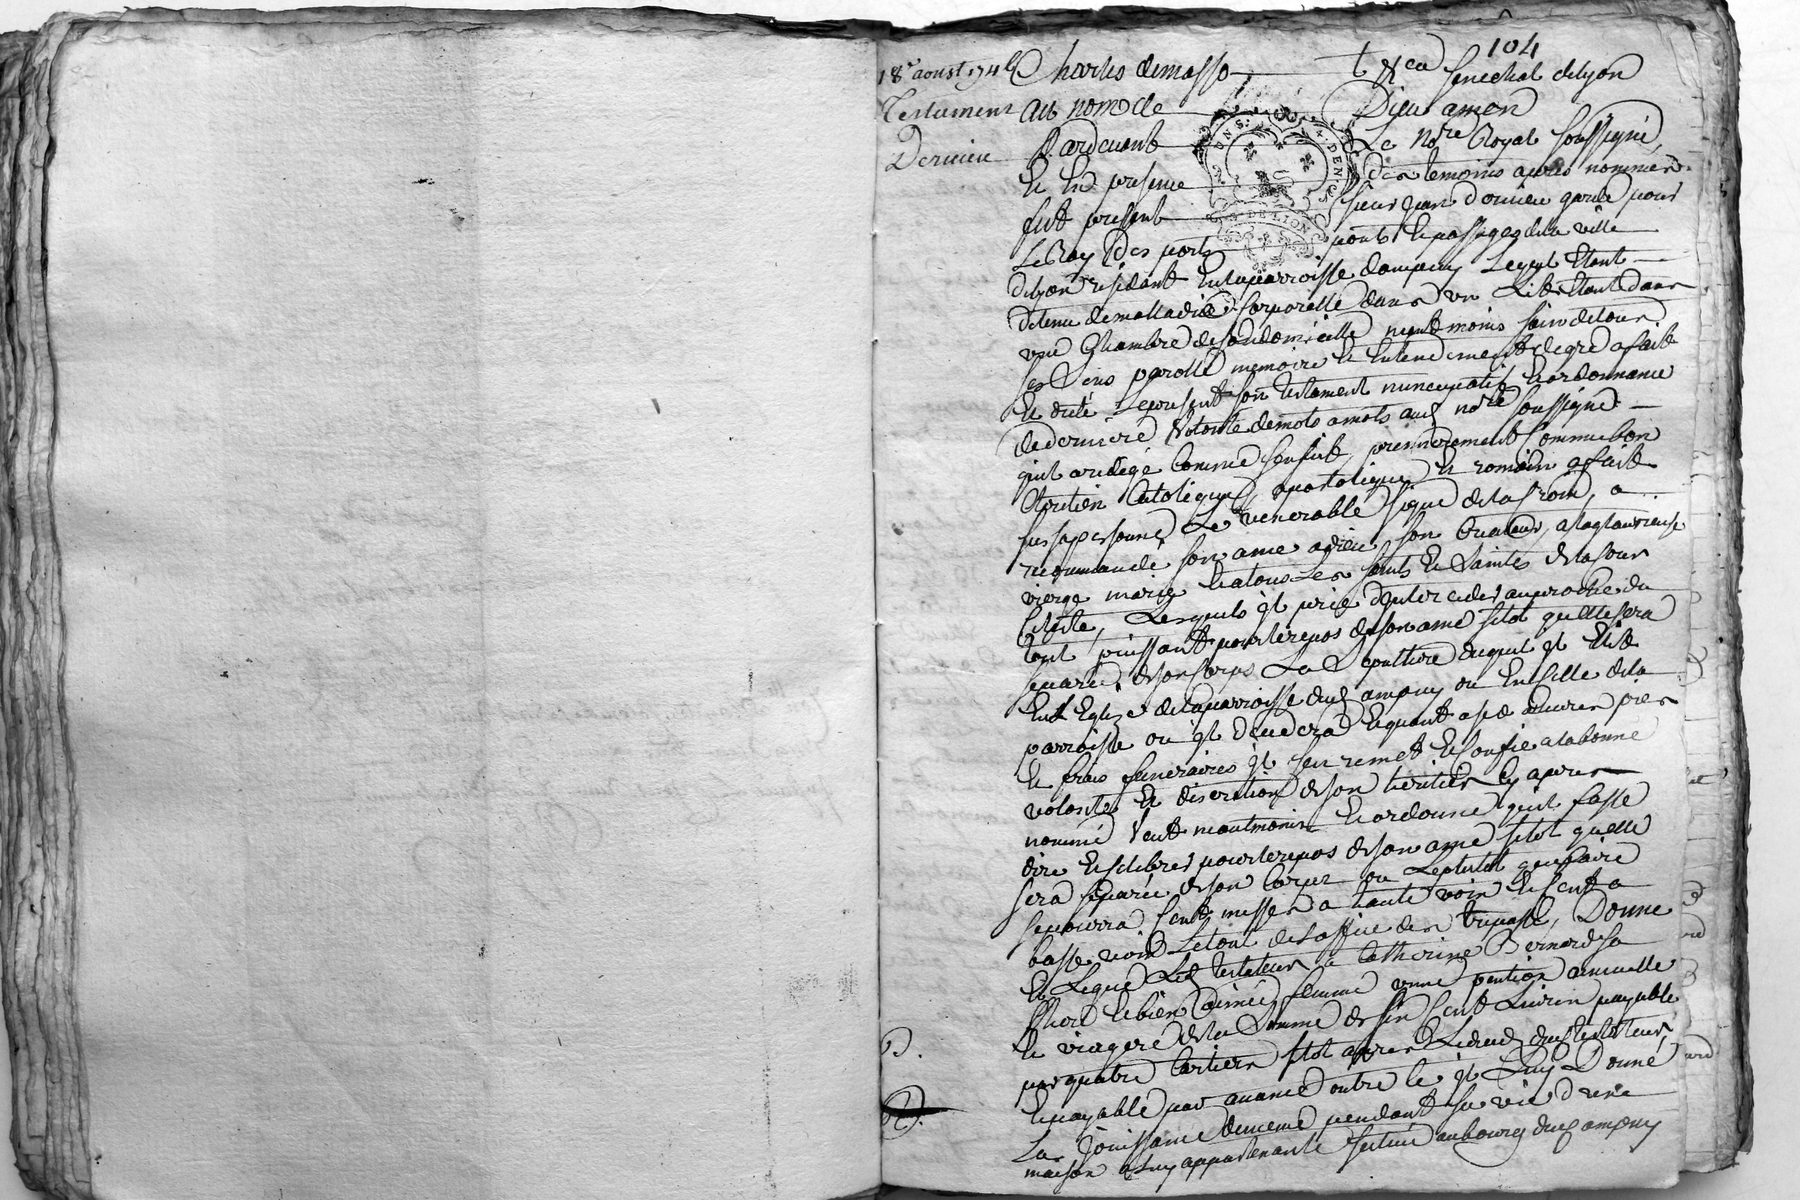 104
18e aoust 174
Testament
Dervieu
Charles demasso senechal delyon
au nom de Dieu amen
Pardevant Le Nore Royal soussigné
Et En presence des temoins apres nommés
fut present sieur jean dervieu garde pour
Le Roy des ports ponts Et passages dela ville
delyon residant En la parroisse dampuy Lequel Etant
detenu demalladie Corporelle dans un Lit Etant dans
une Chambre de son domicille neantmoins sain de tous
ses sens parolle memoire Et Entendement de gré a fait
Et dicté Le present son testament nuncupatif Et ordonnance
de derniere volonté de mots a mots aud nore soussigné
quil a redigé Comme sensuit, premierement Comme bon
Chretien Catolique, apostolique Et romain a fait
sur sa personne Le venerable signe de la Croix, a
recommandé son ame a dieu son Createur, a la glaurieuse
vierge marie Et a tous Les saints Et saintes de la Cour
Celeste, Lesquels il prie d'interceder auproche du
tout puissant pour le repos de son ame sitot quelle sera
separée de son Corps La sepulture duquel il Elit
En L'Eglize de la parroisse dud ampuy ou En celle de la
parroisse ou il decedera Et quant a ses œuvres pies
Et frais funeraires il s'en remet Et Confie a la bonne
volonté Et discretion de son heritier Cy apres
nommé veut neantmoins Et ordonne quil fasse
dire Et celebrer pour le repos de son ame sitot quelle
sera separée de son Corps ou Le plutot que faire
se pourra Cent messes a haute voix Et Cent a
basse voix Le tout de L'office des trepassé, Donne
Et Legue Led testateur a Catherine Bernard sa
Chere Et bien aimée femme une pention annuelle
Et viagere de la somme de six Cent Livres payable
par quatre Cartiers sitot apres Le deced dud testateur
Et payable par avance outre ce il Luy Donne
La jouissance de meme pendant sa vie d'une
maison a Luy appartenante scituée au bourg dud ampuy